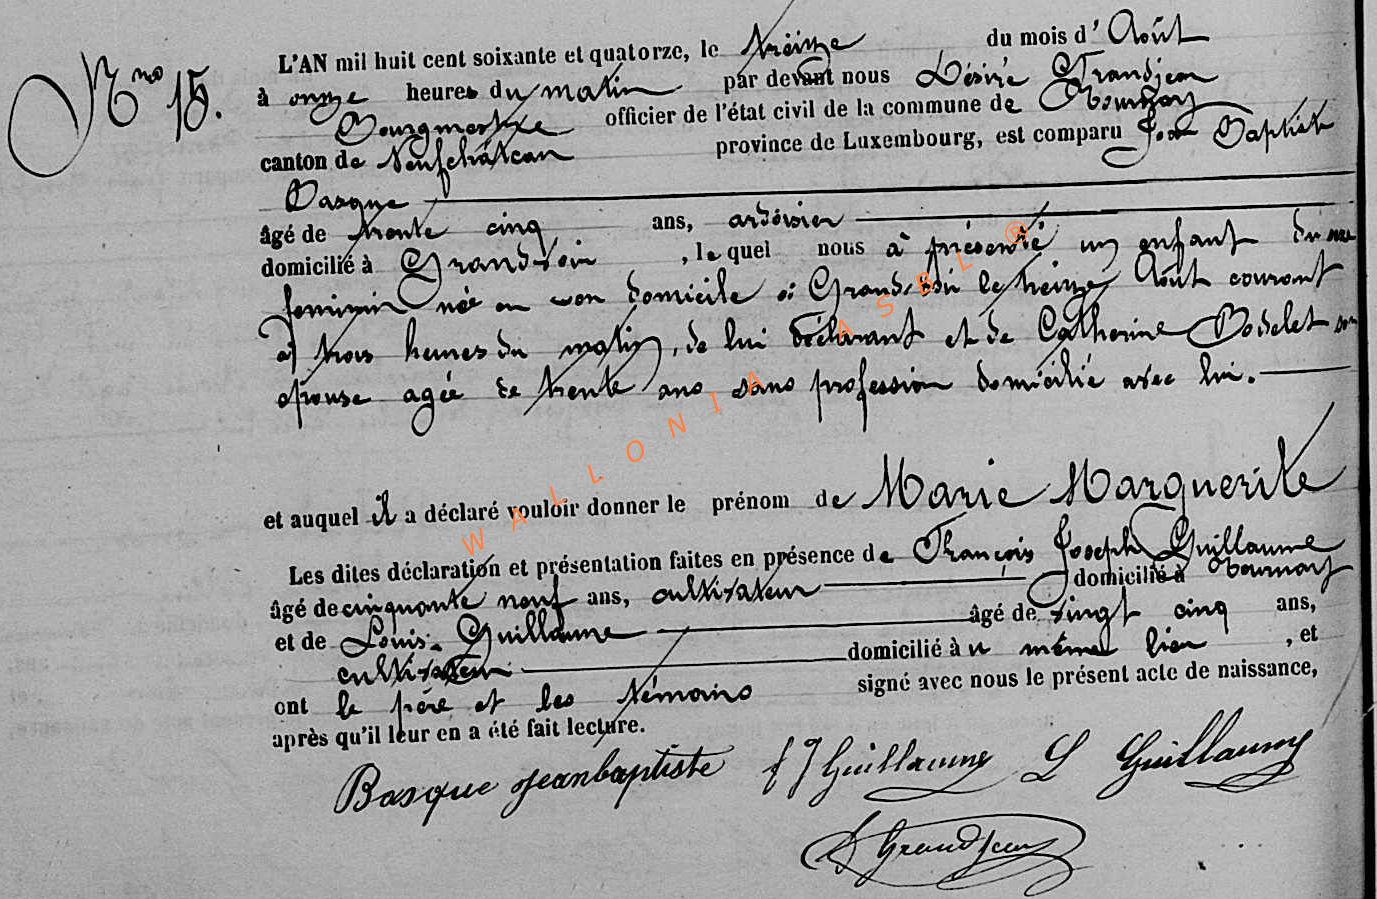 Nro 15.
L'AN mil huit cent soixante et quatorze, le treize du mois d'Août
à onze heures du matin par devant nous Désiré Grandjean
Bourgmestre officier de l'état civil de la commune de Tournay
canton de Neufchâteau province de Luxembourg, est comparu Jean Baptiste
Basque
âgé de trente cinq ans, ardoisier
domicilié à Grandvoir, le quel nous a présenté un enfant du sexe
feminin née en son domicile à Grandvoir le treize Août courant
à trois heures du matin, de lui déclarant et de Catherine Bodelet son
épouse agée de trente ans sans profession domicilié avec lui.
et auquel il a déclaré vouloir donner le prénom de Marie Marguerite
Les dites déclaration et présentation faites en présence de François Joseph Guillaume
âgé de cinquante neuf ans, cultivateur domicilié à Tournay
et de Louis Guillaume âgé de vingt cinq ans,
cultivateur domicilié à u même lieu, et
ont le père et les témoins signé avec nous le présent acte de naissance,
après qu'il leur en a été fait lecture.
Basque jeanbaptiste f j Guillaume L Guillaume
D Grandjean
WALLONIA ASBL ®